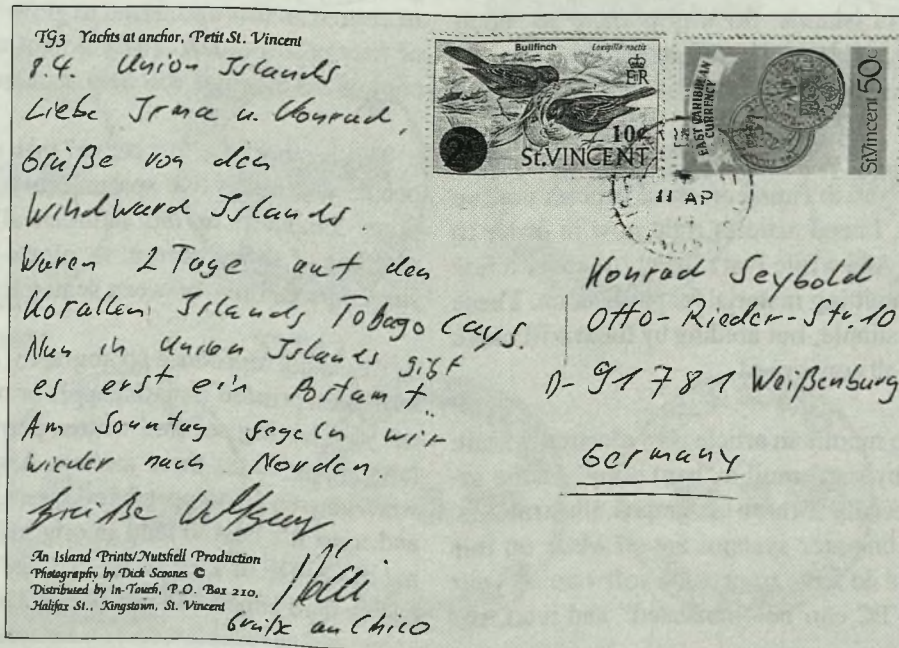 TG3 Yachts at anchor, Petit St. Vincent
8.4. Union Islands
Liebe Irma u. Konrad,
Grüße von den
Windward Islands.
Waren 2 Tage auf den
Korallen Islands Tobago Cays.
Nun in Union Islands gibt
es erst ein Postamt.
Am Sonntag segeln wir
wieder nach Norden
Grüße Wolfgang
An Island Prints/Nutshell Production
Photography by Dick Scoones ©
Distributed by In-Touch, P.O. Box 210,
Halifax St., Kingstown, St. Vincent
Grüße an Chico
Bullfinch
Loxigilla noctis
ER
10c
St.VINCENT
EAST CARIBBEAN
CURRENCY
St.Vincent 50c
11 AP
Konrad Seybold
Otto-Rieder-Str. 10
D-91781 Weißenburg
Germany